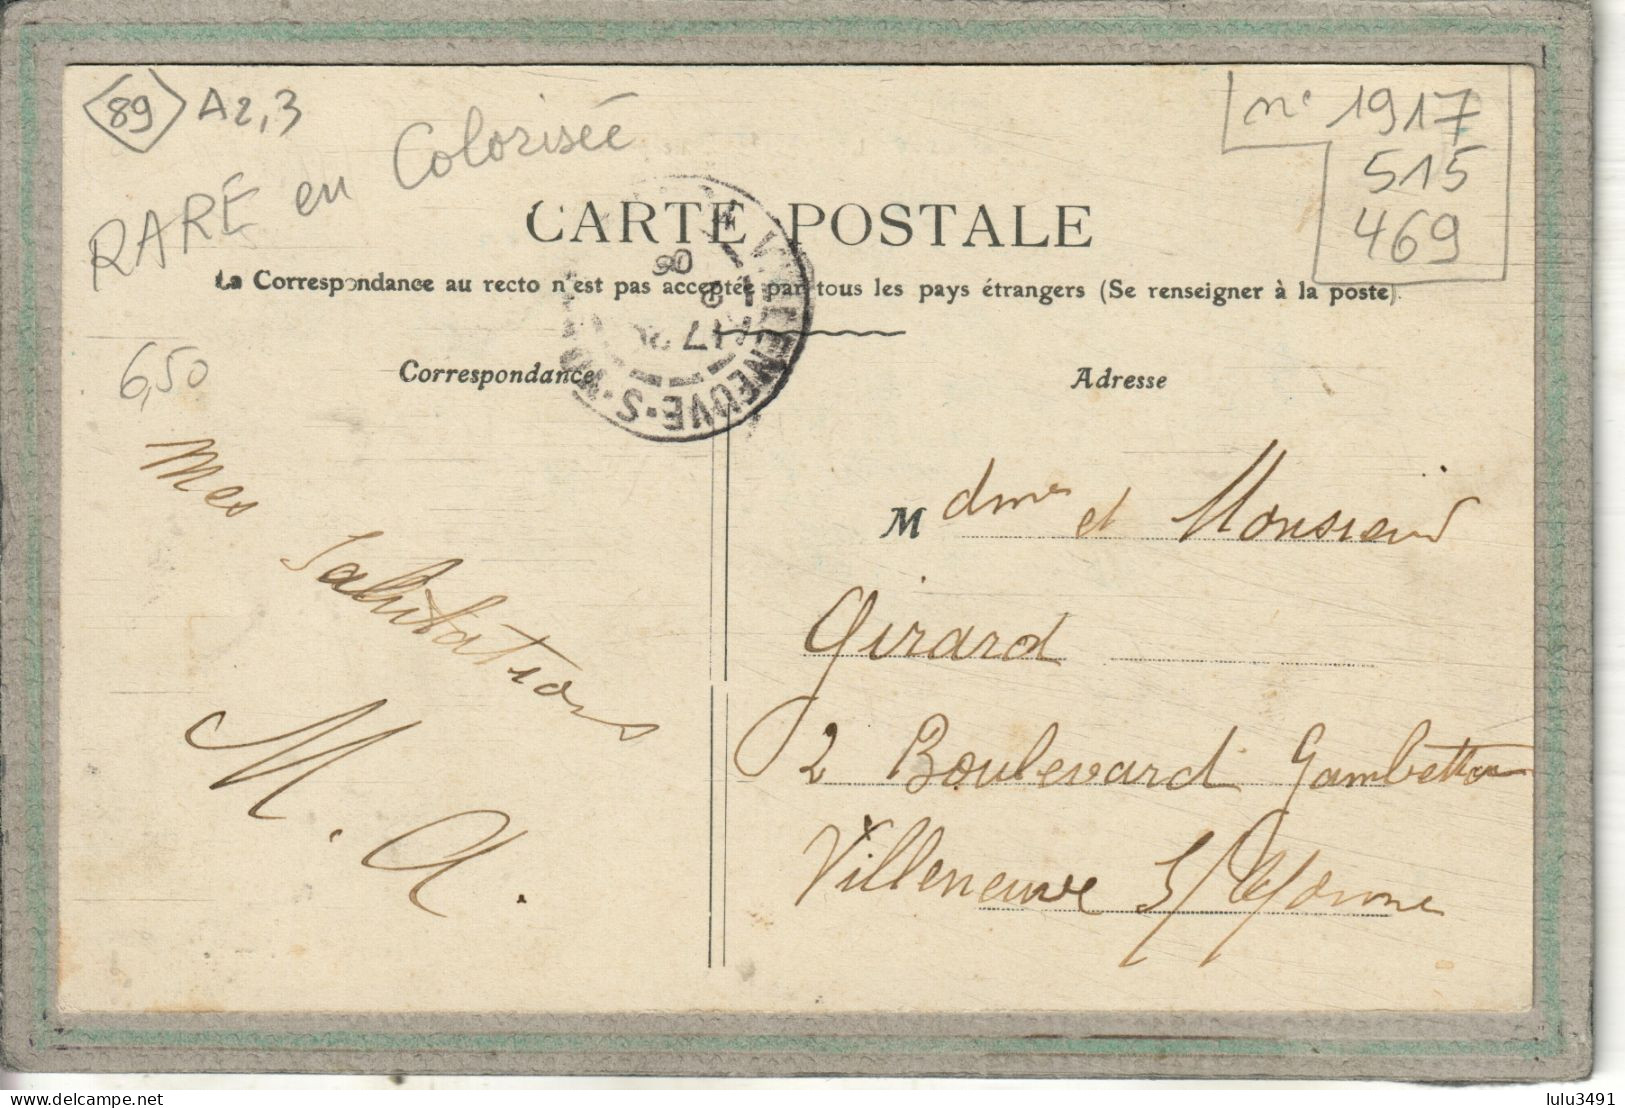 89 A2,3
RARE en Colorisée
n° 1917
515
469
CARTE POSTALE
La Correspondance au recto n'est pas acceptée par tous les pays étrangers (Se renseigner à la poste).
VILLENEUVE-S-
06
Correspondance
Adresse
6,50
Mes
Salutations
M. A.
Mdme et Monsieur
Girard
2 Boulevard Gambetta
Villeneuve S/ Yonne
www.delcampe.net
lulu3491